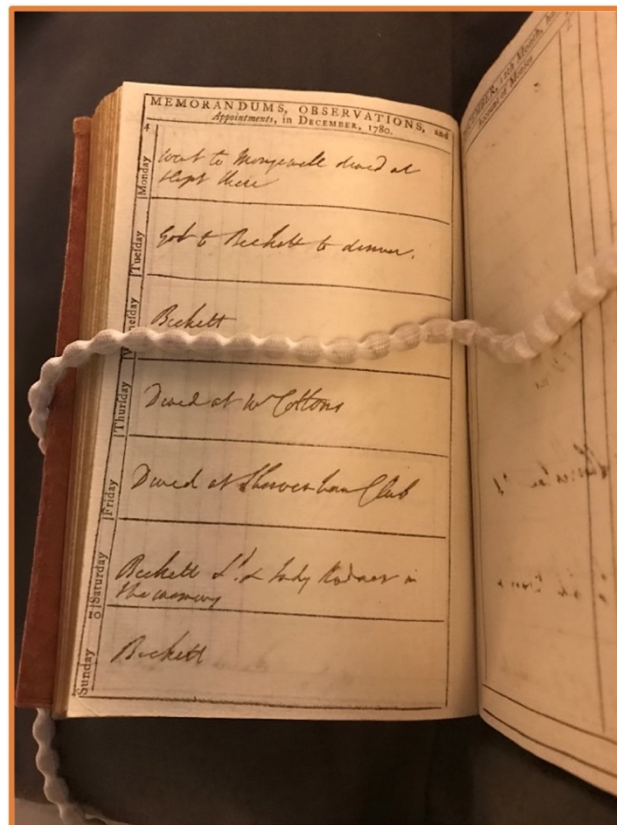 MEMORANDUMS, OBSERVATIONS, and
Appointments, in DECEMBER, 1780.
4
Monday
Went to Mongewell dined &
slept there
Tuesday
Got to Beckett to dinner.
nesday
Beckett
Thurſday
Dined at Wm Cottons
Friday
Dined at Club
Saturday
Beckett Ld. & Lady Radnor in
the
10
Sunday
Beckett